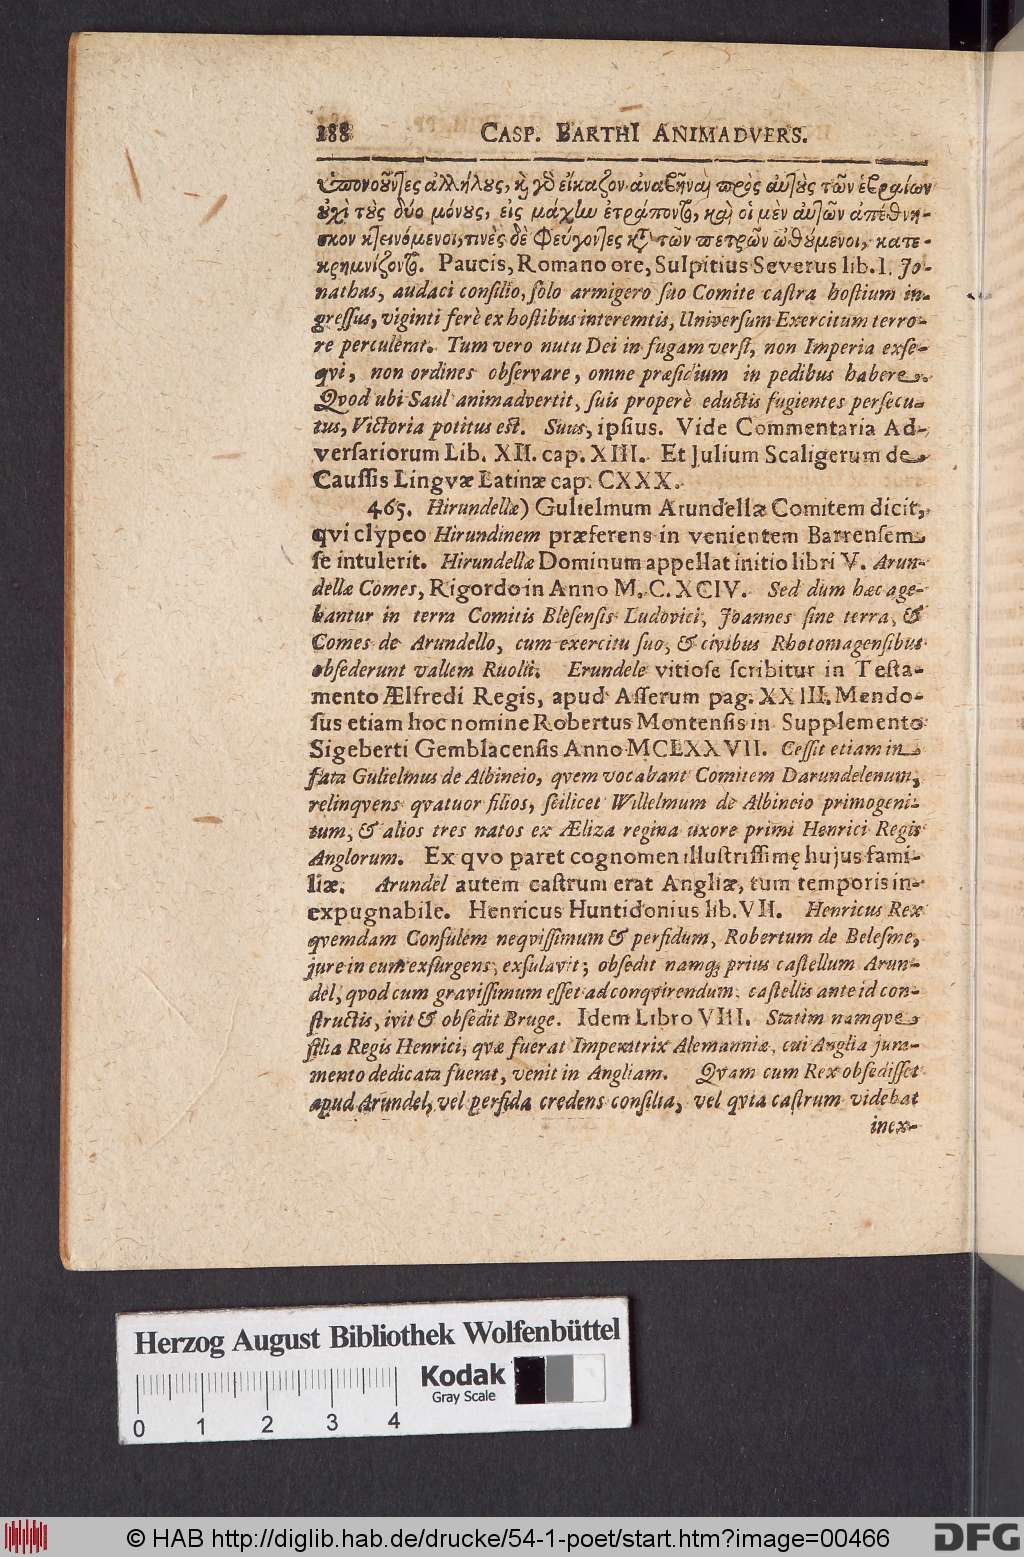 288 CASP. BARTHI ANIMADVERS.
ὑπονοοῦντες ἀλλήλους, καὶ γὸ εἴκαζον ἀναβῆναι πρὸς αὐτοὺς τῶν ἑβραίων
οὐχὶ τοὺς δύο μόνους, εἰς μάχίω ἐτράποντο, καὶ οἱ μὲν αὐτῶν ἀπέθνη-
σκον κτεινόμενοι, τινὲς δὲ Φεύγοντες κτ̄ τῶν πετρῶν ὠθούμενοι, κατε-
κρημνίζοντο. Paucis, Romano ore, Sulpitius Severus lib. I. Jo-
nathas, audaci consilio, solo armigero suo Comite castra hostium in-
gressus, viginti ferè ex hostibus interemtis, Universum Exercitum terro-
re perculerat. Tum vero nutu Dei in fugam versi, non Imperia exse-
qvi, non ordines observare, omne præsidium in pedibus habere.
Qvod ubi Saul animadvertit, suis properè eductis fugientes persecu-
tus, Victoria potitus est. Suus, ipsius. Vide Commentaria Ad-
versariorum Lib. XII. cap. XIII. Et Julium Scaligerum de
Caussis Lingvæ Latinæ cap. CXXX.
465. Hirundellæ) Gulielmum Arundellæ Comitem dicit,
qvi clypeo Hirundinem præferens in venientem Barrensem
se intulerit. Hirundellæ Dominum appellat initio libri V. Arun-
dellæ Comes, Rigordo in Anno M. C. XCIV. Sed dum hæc age-
bantur in terra Comitis Blesensis Ludovici, Joannes sine terra, &
Comes de Arundello, cum exercitu suo, & civibus Rhotomagensibus
obsederunt vallem Ruolii. Erundele vitiose scribitur in Testa-
mento Ælfredi Regis, apud Asserum pag. XXIII. Mendo-
sus etiam hoc nomine Robertus Montensis in Supplemento
Sigeberti Gemblacensis Anno MCLXXVII. Cessit etiam in
fata Gulielmus de Albineio, qvem vocabant Comitem Darundelenum,
relinqvens qvatuor filios, scilicet Willelmum de Albineio primogeni-
tum, & alios tres natos ex Æliza regina uxore primi Henrici Regis
Anglorum. Ex qvo paret cognomen illustrissimę hujus fami-
liæ. Arundel autem castrum erat Angliæ, tum temporis in-
expugnabile. Henricus Huntidonius lib. VII. Henricus Rex
qvemdam Consulem neqvissimum & perfidum, Robertum de Belesme,
jure in eum exsurgens, exsulavit; obsedit namq; prius castellum Arun-
del, qvod cum gravissimum esset ad conqvirendum, castellis ante id con-
structis, ivit & obsedit Bruge. Idem Libro VIII. Statim namqve
filia Regis Henrici, qvæ fuerat Imperatrix Alemanniæ, cui Anglia jura-
mento dedicata fuerat, venit in Angliam. Qvam cum Rex obsedisset
apud Arundel, vel perfida credens consilia, vel qvia castrum videbat
inex-
Herzog August Bibliothek Wolfenbüttel
Kodak
Gray Scale
0 1 2 3 4
© HAB http://diglib.hab.de/drucke/54-1-poet/start.htm?image=00466
DFG